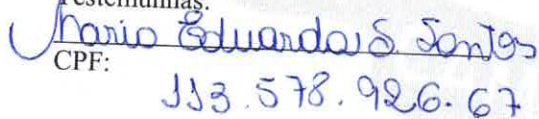 Testemunhas:
Maria Eduarda S. Santos
CPF:
113.578.926.67